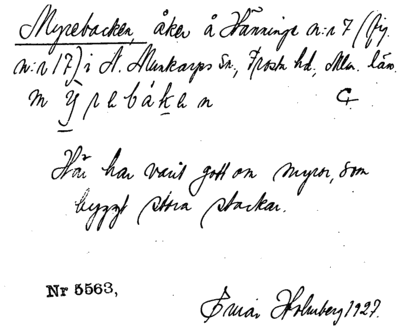 Myrebacken, åker å Hänninge n:r 7 (fig.
n:r 17) i N. Munkarps sn., Frosta hd., Mlm. län.
m y̱ r e b á k e n
Här har varit gott om myror, som
byggt stora stackar.
Nr 5563,
Holmberg 1927.